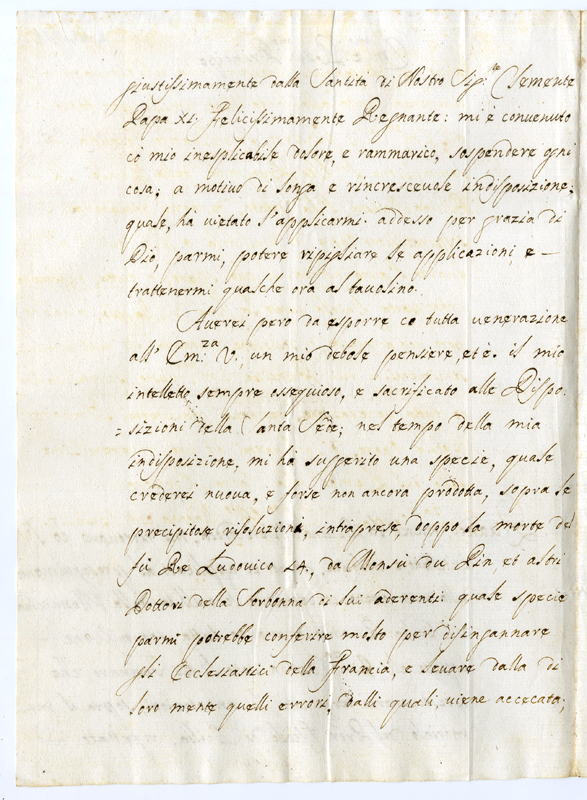 giustissimamente dalla Santità di Nostro Sig:re Clemente
Papa XI: Felicissimamente Regnante: mi è convenuto
cō mio inesplicabile dolore, e rammarico, sospendere ogni
cosa; a motivo di longa e rincrescevole indisposizione;
quale, ha vietato l'applicarmi. adesso per grazia di
Dio, parmi, potere ripigliare le applicazioni, e —
trattenermi qualche ora al tavolino.
Averei però da esporre cō tutta venerazione
all' Em:za V., un mio debole pensiere, et è. il mio
intelletto, sempre ossequioso, e sacrificato alle Dispo:
= sizioni della Santa Sede; nel tempo della mia
indisposizione, mi ha suggerito una specie, quale
crederei nuova, e forse non ancora prodotta, sopra le
precipitose risoluzioni, intraprese, doppo la morte del
fù Re Ludovico 14., da Monsù du Pin et altri
Dottori della Sorbonna di lui aderenti: quale specie
parmi potrebbe conferire molto per disingannare
gli Ecclesiastici della Francia, e levare dalla di
loro mente quelli errori, dalli quali, viene accecata;